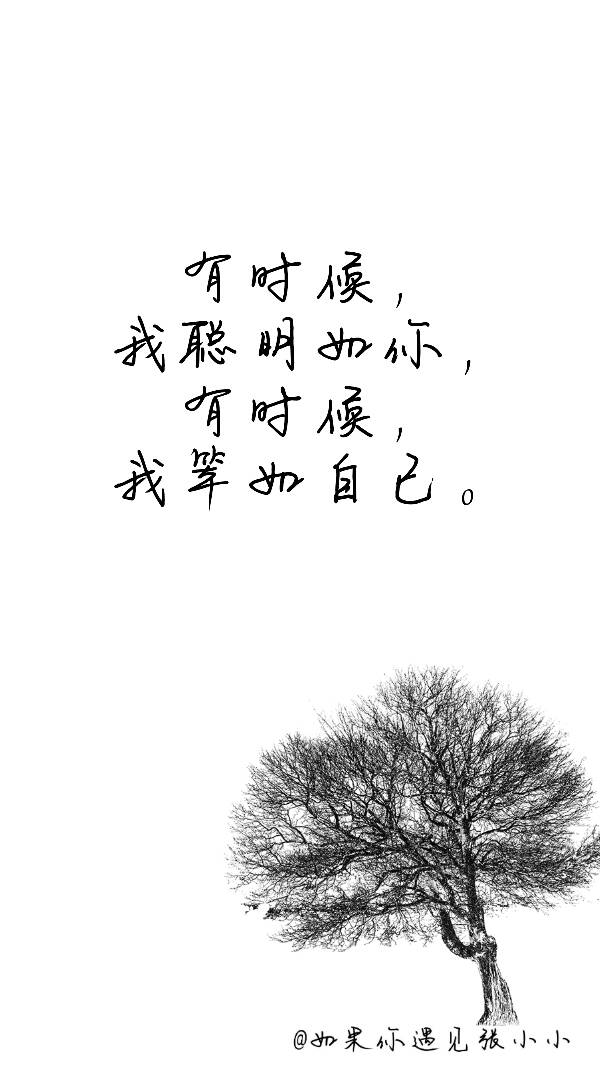 有时候，
我聪明如你，
有时候，
我笨如自己。
@如果你遇见张小小